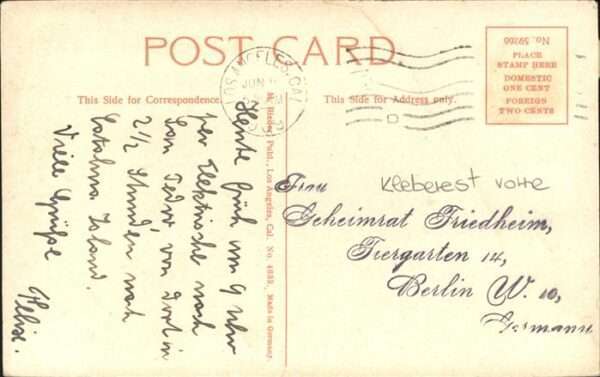 POST CARD.
No. 59266
PLACE
STAMP HERE
DOMESTIC
ONE CENT
FOREIGN
TWO CENTS
LOS ANGELES, CAL.
JUN
D
This Side for Correspondence.
This Side for Address only.
M. Rieder, Publ., Los Angeles, Cal. No. 4633. Made in Germany.
Heute früh um 9 Uhr
per Elektrische nach
San Pedro, von dort in
2 1/2 Stunden nach
Catalina Island.
Viele Grüße
Frau
Geheimrat Friedheim,
Tiergarten 14,
Berlin W. 10,
Germany